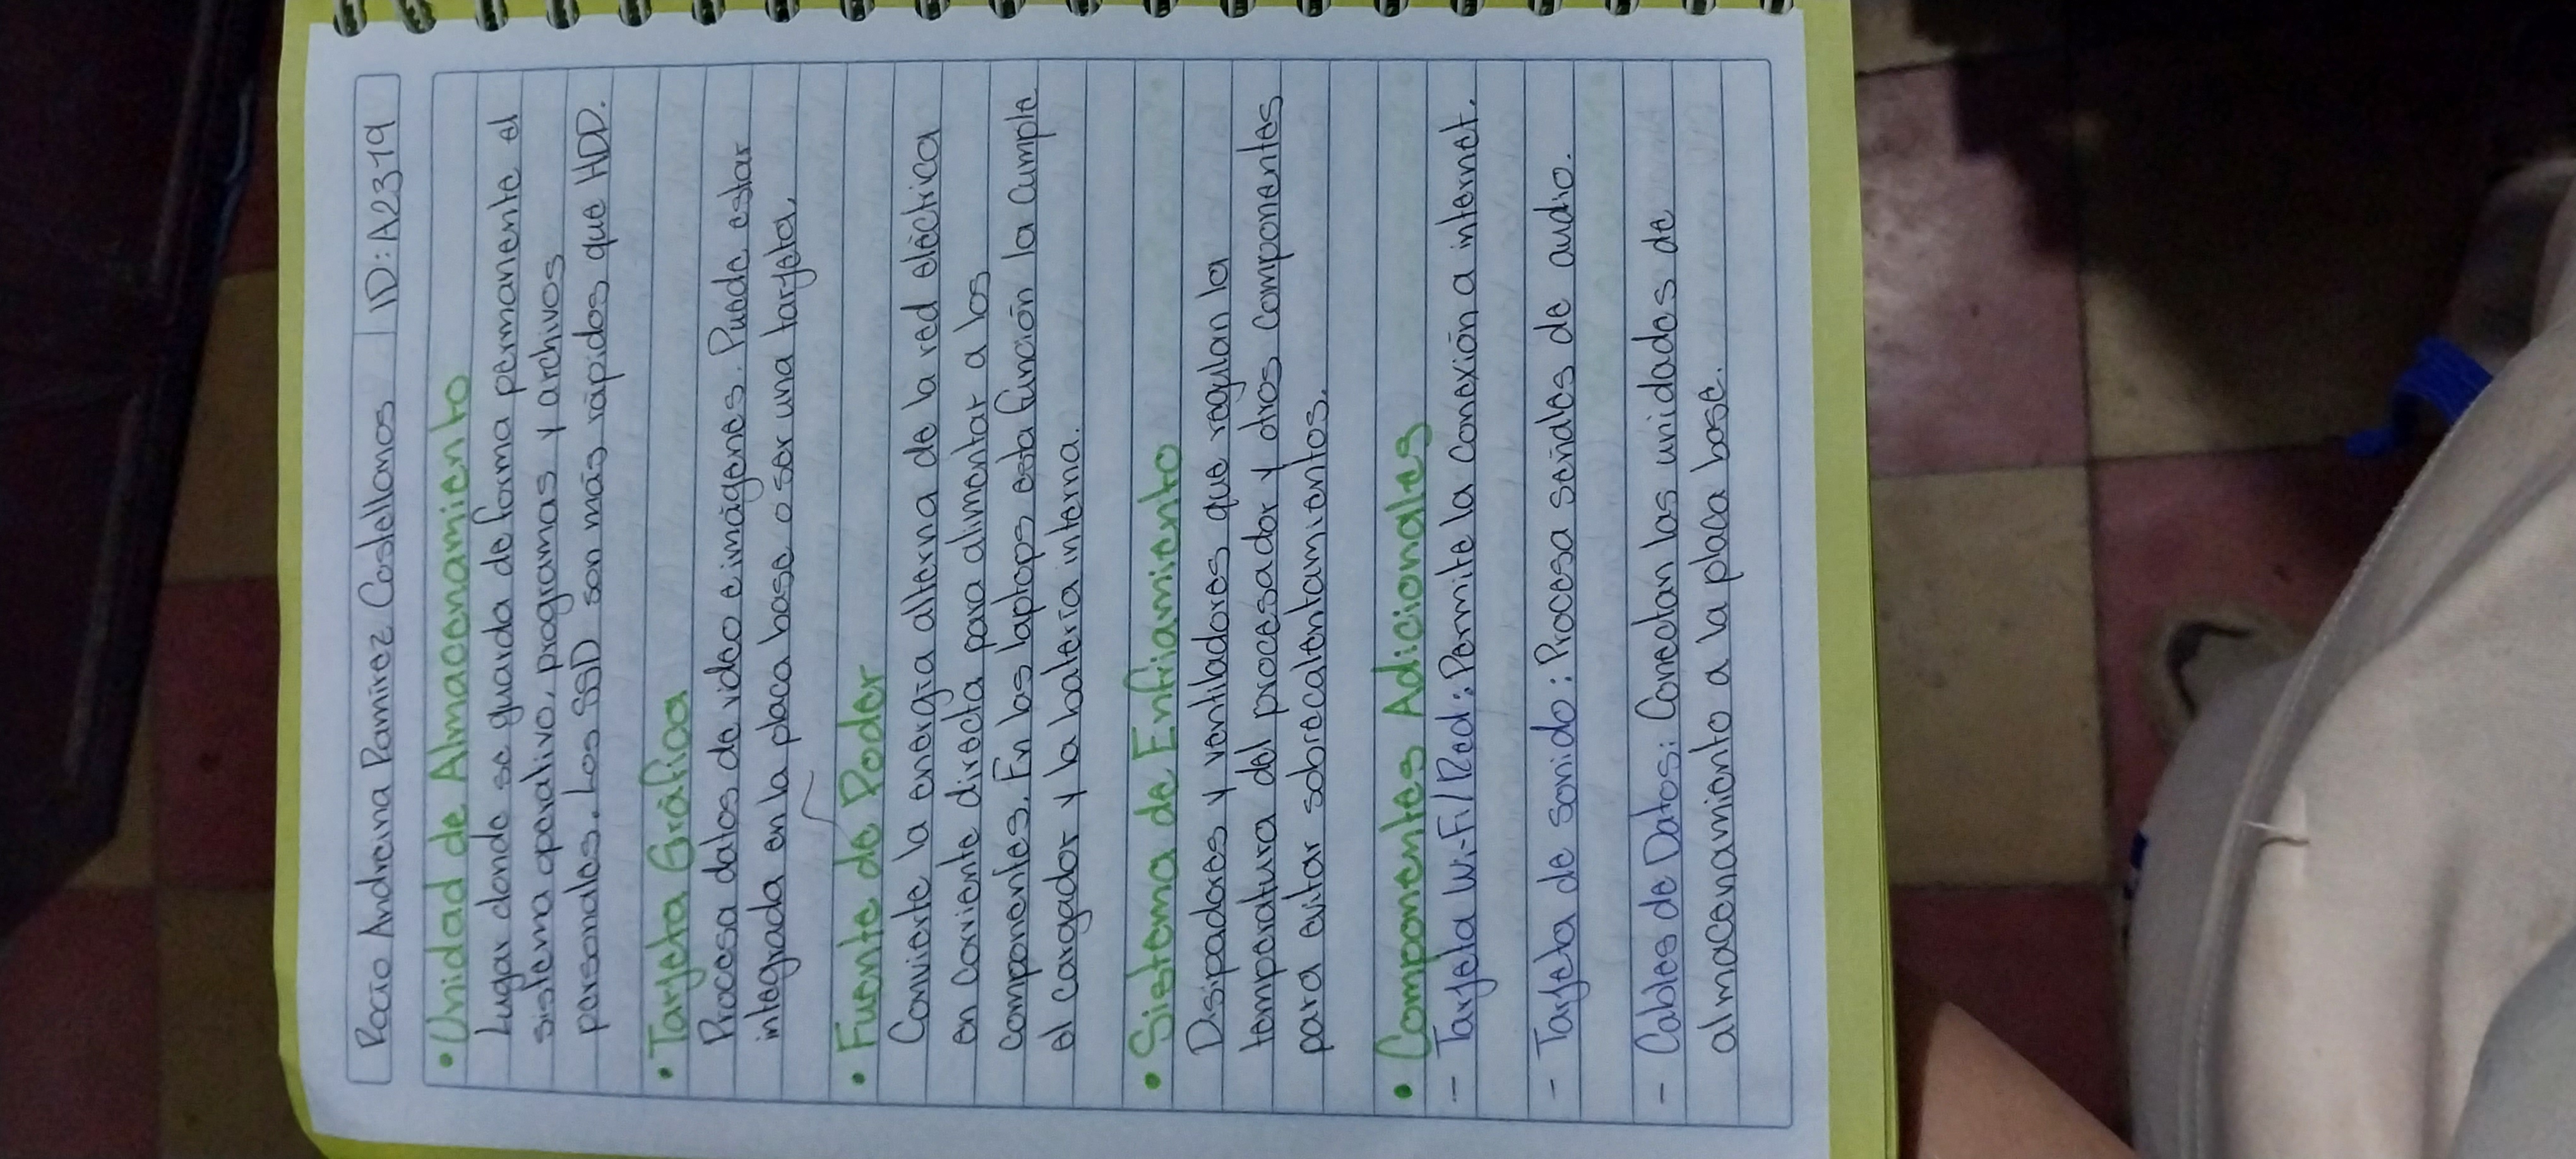 Rocío Andreina Ramírez Castellanos ID: A23-19
• Unidad de Almacenamiento
Lugar donde se guarda de forma permanente el
sistema operativo, programas y archivos
personales. Los SSD son más rápidos que HDD.
• Tarjeta Gráfica
Procesa datos de video e imágenes. Puede estar
integrada en la placa base o ser una tarjeta.
• Fuente de Poder
Convierte la energía alterna de la red eléctrica
en corriente directa para alimentar a los
componentes. En las laptops esta función la cumple
el cargador y la batería interna.
• Sistema de Enfriamiento
Disipadores y ventiladores que regulan la
temperatura del procesador y otros componentes
para evitar sobrecalentamientos.
• Componentes Adicionales
- Tarjeta Wi-Fi/Red: Permite la conexión a internet.
- Tarjeta de sonido: Procesa señales de audio.
- Cables de Datos: Conectan las unidades de
almacenamiento a la placa base.